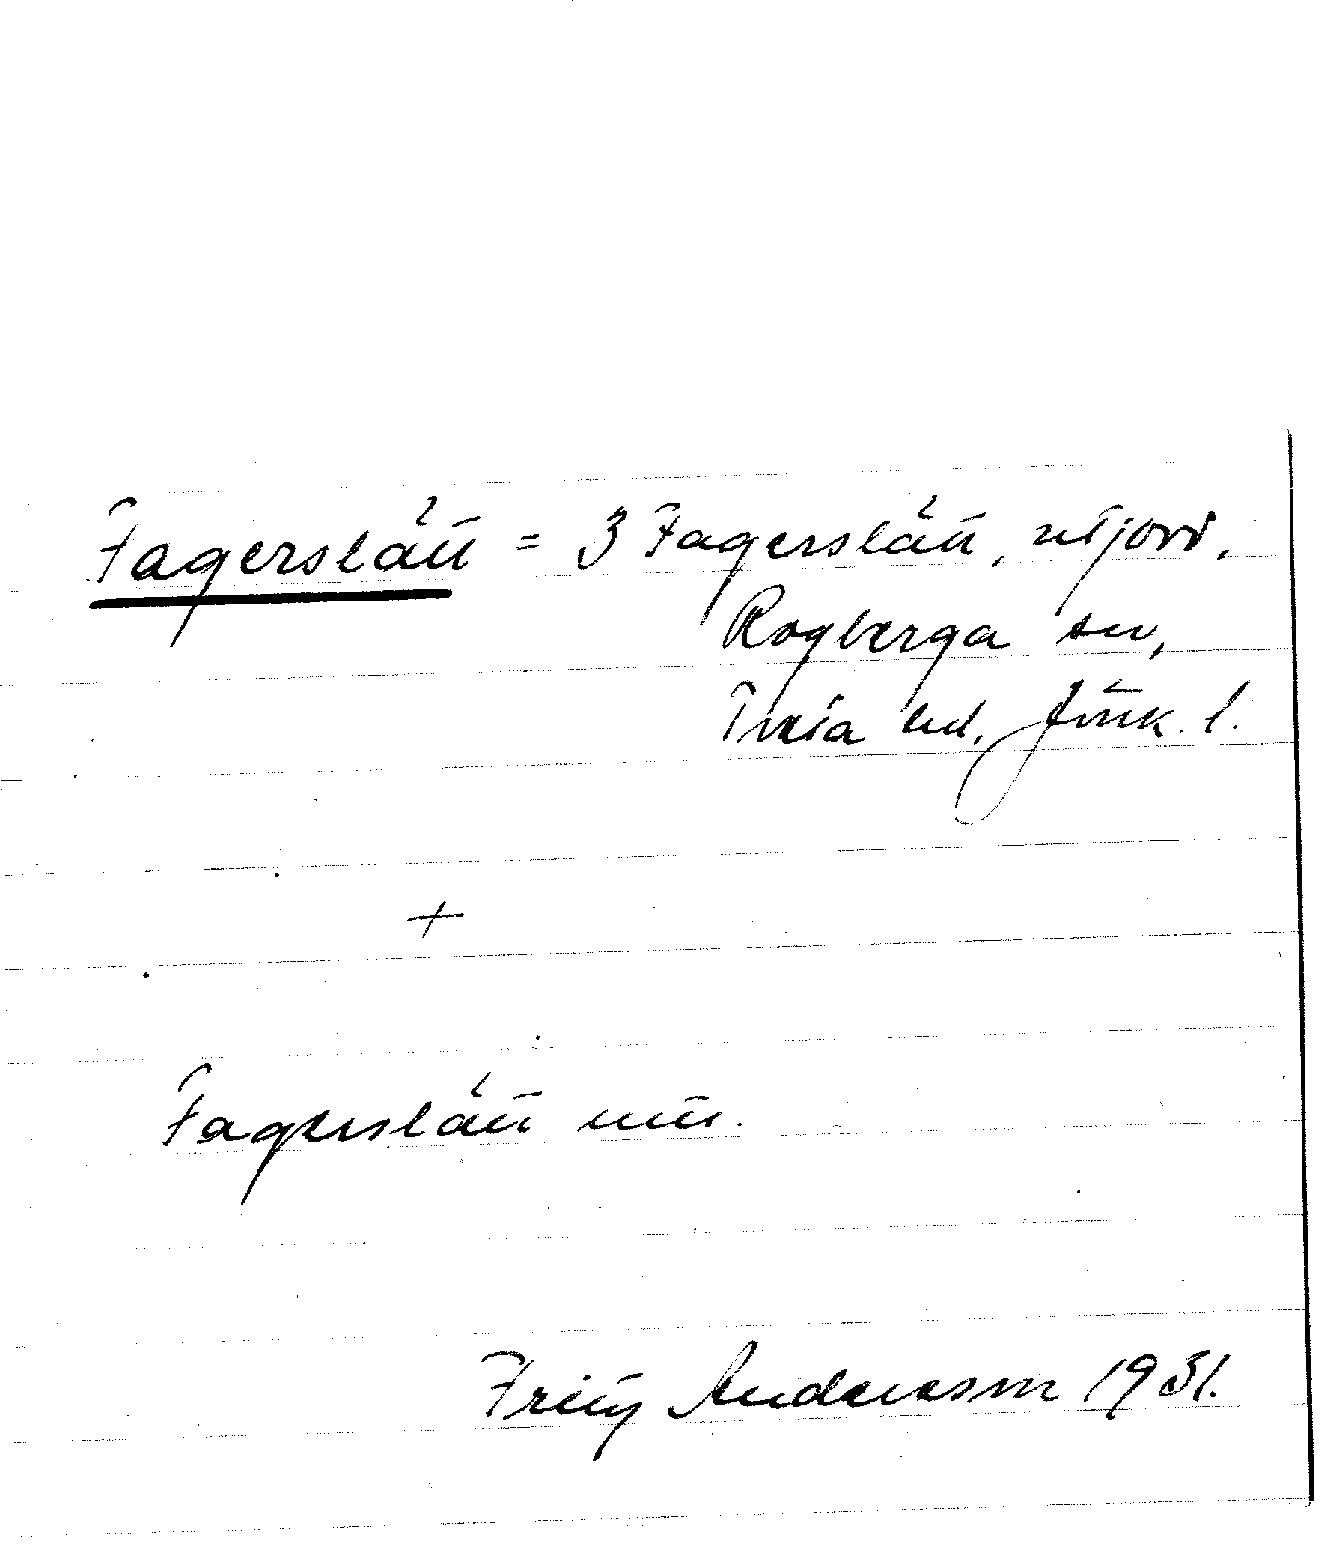 Fagerslätt = 3 Fagerslätt, utjord,
Rogberga sn,
Tveta hd. Jönk. l.
+
Fagerslätt
Fritz Andersson 1931.